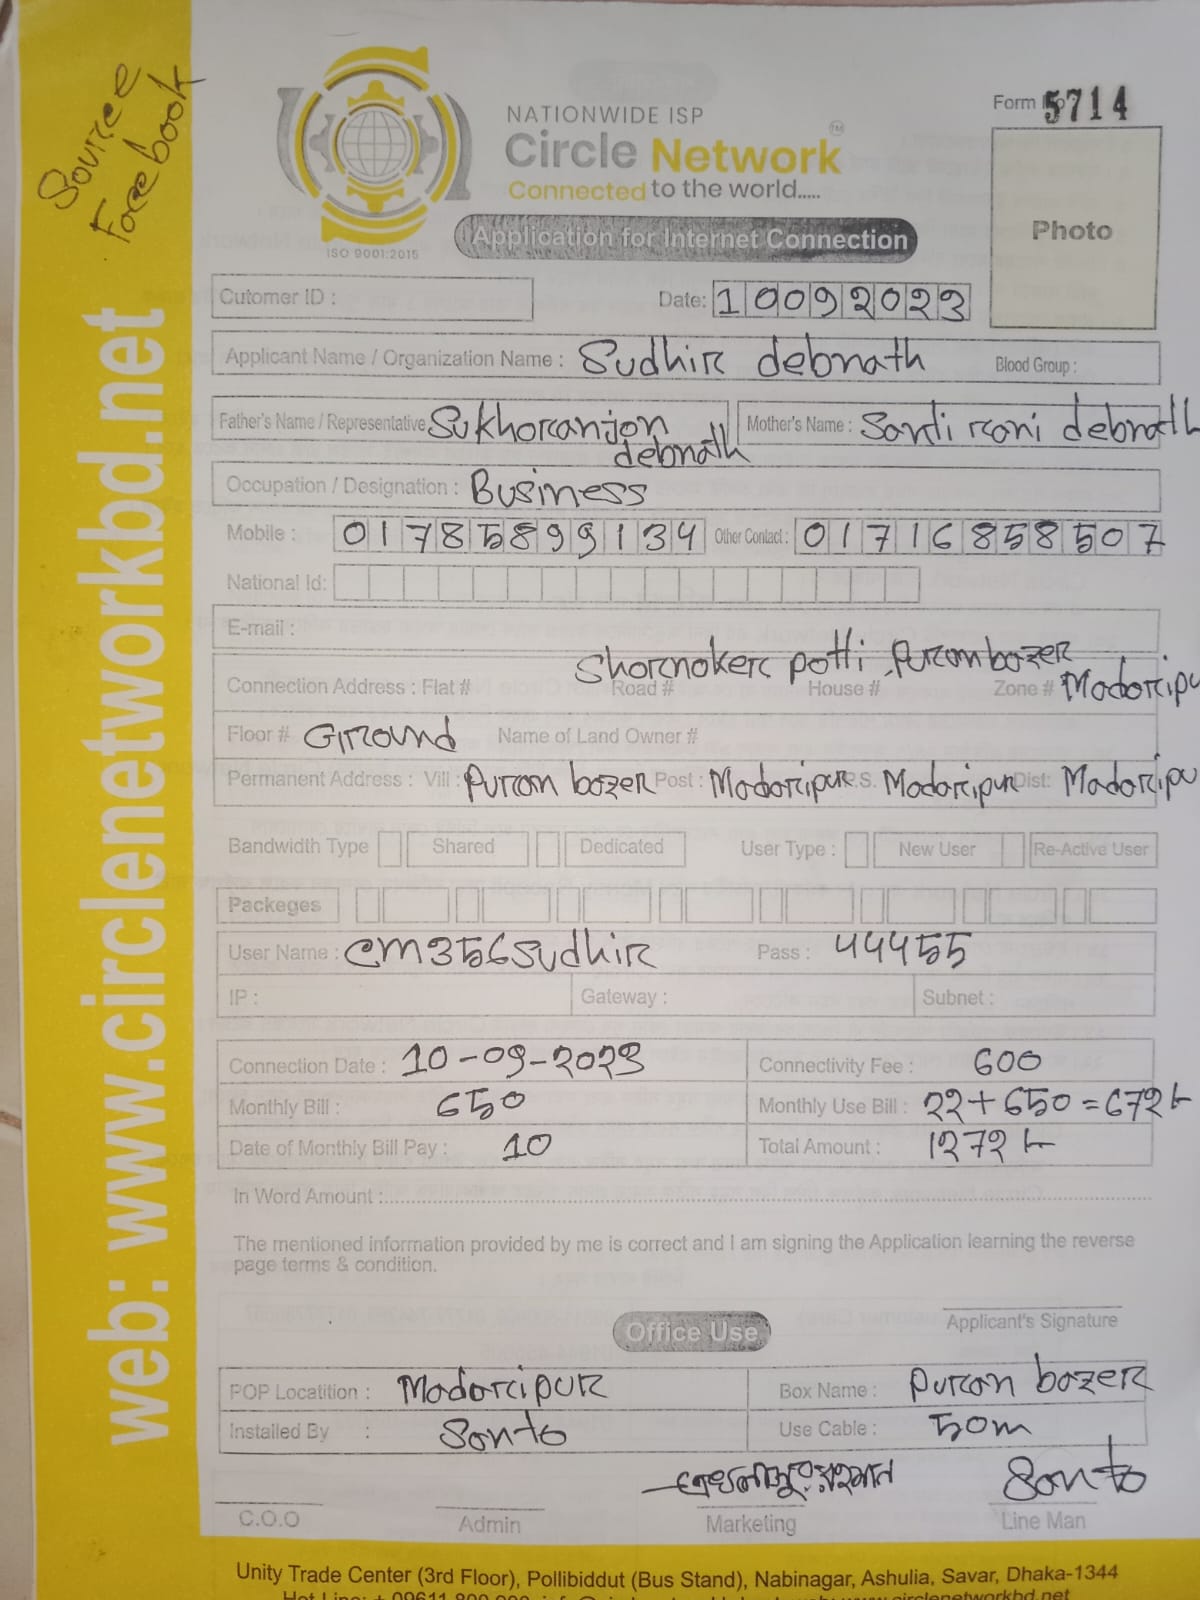 Source
Facebook
NATIONWIDE ISP
Circle Network TM
Connected to the world.....
ISO 9001:2015
Form 5714
Application for Internet Connection
Photo
Cutomer ID :
Date: 10092023
Applicant Name / Organization Name : Sudhir debnath Blood Group :
Father's Name / Representative Sukhoranjon debnath Mother's Name : Santi rani debnath
Occupation / Designation : Business
Mobile : 01785899134 Other Contact : 01716858507
National Id:
E-mail :
Shornoker potti, Puran bazer
Connection Address : Flat # Road # House # Zone # Madaripu
Floor # Ground Name of Land Owner #
Permanent Address : Vill : Puran bazer Post : Madaripur P.S. Madaripur Dist: Madaripu
Bandwidth Type Shared Dedicated User Type : New User Re-Active User
Packeges
User Name : cm356sudhir Pass : 44455
IP : Gateway : Subnet :
Connection Date : 10-09-2023 Connectivity Fee : 600
Monthly Bill : 650 Monthly Use Bill : 22+650=672/-
Date of Monthly Bill Pay : 10 Total Amount : 1272/-
In Word Amount :
The mentioned information provided by me is correct and I am signing the Application learning the reverse
page terms & condition.
Applicant's Signature
Office Use
POP Locatition : Madaripur Box Name : Puran bazer
Installed By : Santo Use Cable : 50m
Santo
C.O.O Admin Marketing Line Man
Unity Trade Center (3rd Floor), Pollibiddut (Bus Stand), Nabinagar, Ashulia, Savar, Dhaka-1344
web: www.circlenetworkbd.net